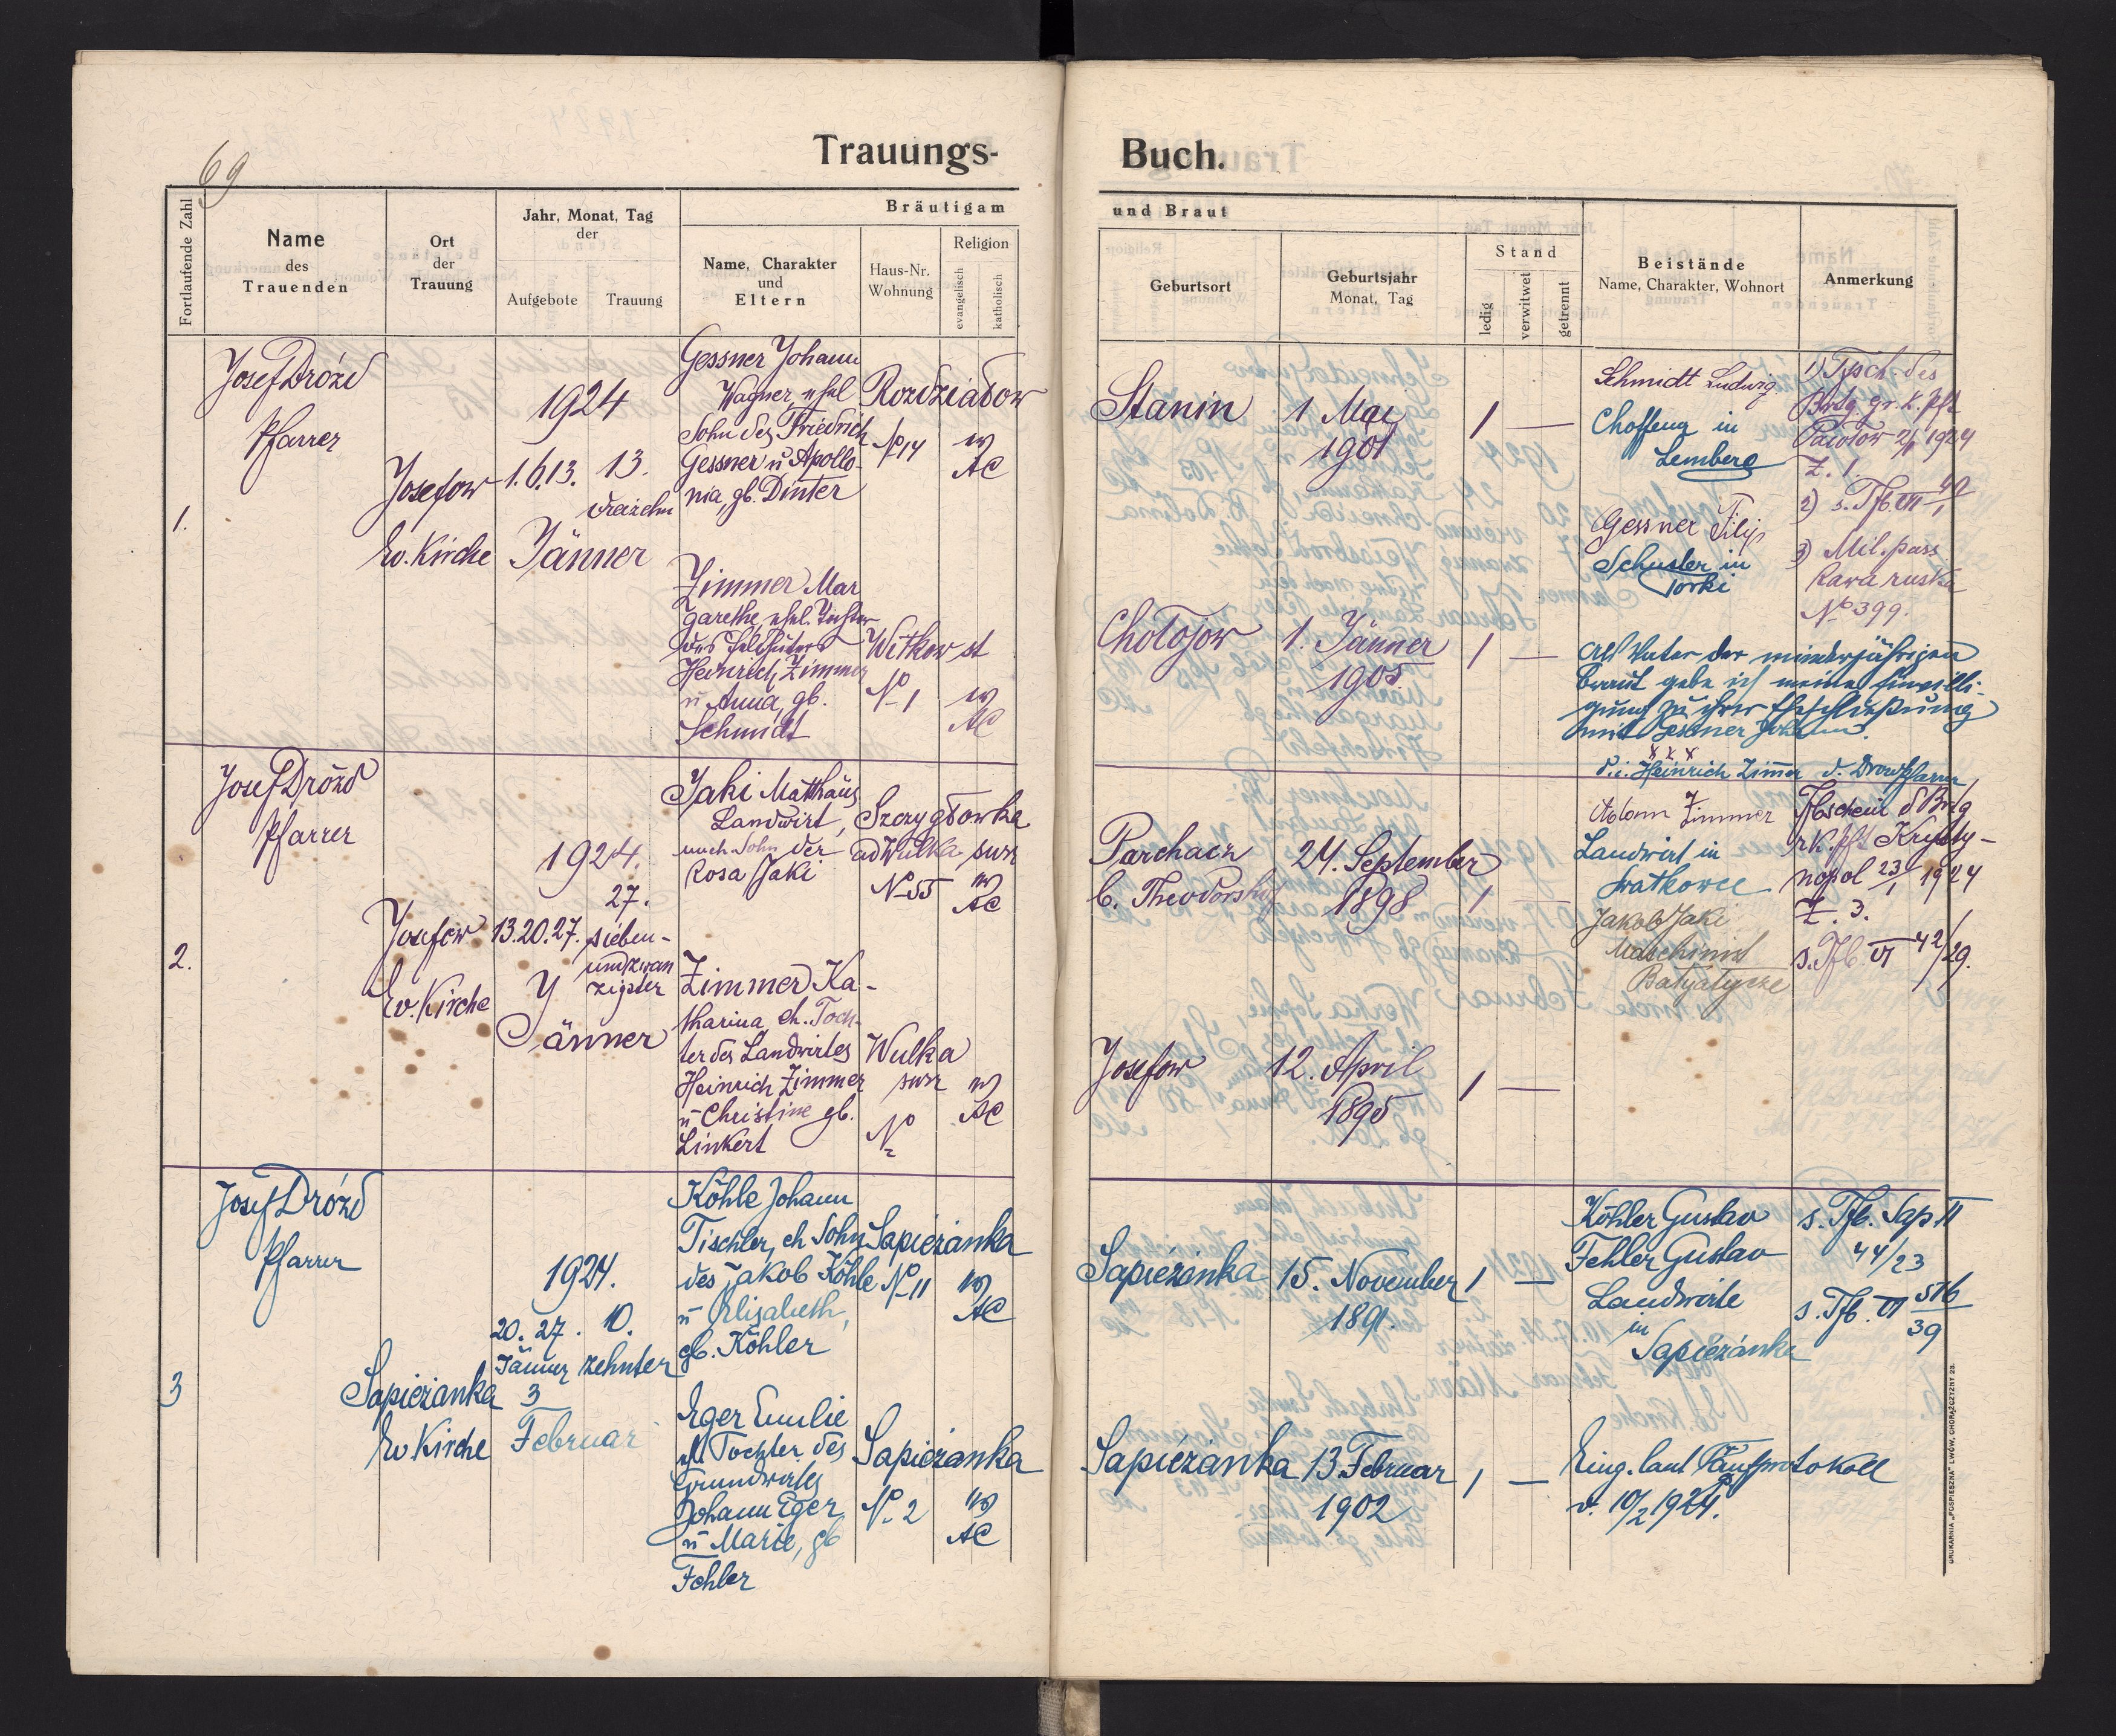 69
Trauungs-
Buch.
Fortlaufende Zahl
Name
des
Trauenden
Ort
der
Trauung
Jahr, Monat, Tag
der
Aufgebote
Trauung
Bräutigam
Name, Charakter
und
Eltern
Haus-Nr.
Wohnung
Religion
evangelisch
katholisch
und Braut
Geburtsort
Geburtsjahr
Monat, Tag
Stand
ledig
verwitwet
getrennt
Beistände
Name, Charakter, Wohnort
Anmerkung
1.
Josef Drózd
Pfarrer
Josefow
Ev. Kirche
1924
1.6.13.
13.
dreizehn
Jänner
Gessner Johann
Wagner, ehel
Sohn des Friedrich
Gessner u Apollo-
nia, gb. Dinter
Rozdziałow
No 14
ev
AC
Stanin
1 Mai
1901
1 —
Schmidt Ludwig
in
Lemberg
Gessner Filip
Schuster in
Torki
des
Brtg. gr. k. Pft
1924
Z. 1.
2) s. Tfb. VI
3) Mil. pass
Rawa ruska
No 399.
Zimmer Mar
garethe, ehel. Tochter
des
Heinrich Zimmer
u Anna, gb.
Schmidt
Witkow st
No 1
ev
AC
Chołojow
1. Jänner
1905
1 —
Als Vater der minderjährigen
Braut gebe ich meine Einwilli-
gung zu ihrer Eheschließung
mit Gessner Johann.
x x x
d.i. Heinrich Zimmer d. Drozd Pfarrer
2.
Josef Drózd
Pfarrer
Josefow
Ev. Kirche
1924.
13.20.27.
27.
sieben-
undzwan
zigster
Jänner
Jaki Matthäus
Landwirt,
uneh. Sohn der
Rosa Jaki
Szczygłowka
ad Wulka
No 55
ev
AC
Parchacz
b. Theodorshof
24. September
1898
1 —
Adam Zimmer
Landwirt in
Jakob Jaki
Maschinist
Batyatycze
Tfbschein d Brtg
rk. Pft Krysty-
nopol 23/1 1924
Z. 3.
s. Tfb VI 42/29.
Zimmer Ka-
tharina, eh. Toch-
ter des Landwirtes
Heinrich Zimmer
u Christine gb.
Linkert
Wulka
No
ev
AC
Josefow
12. April
1895
1 —
3
Josef Drózd
Pfarrer
Sapieżanka
Ev Kirche
1924.
20. 27.
Jänner
3
Februar
10.
zehnter
Köhle Johann
Tischler, eh Sohn
des Jakob Köhle
u Elisabeth,
gb. Köhler
Sapieżanka
No 11
ev
AC
Sapieżanka
15. November
1891.
1 —
Köhler Gustav
Fehler Gustav
Landwirte
in
Sapieżanka
s. Tfb. Sap II
44/23
s. Tfb. VI 516
39
Eger Emilie
eh. Tochter des
Grundwirtes
Johann Eger
u Marie, gb
Fehler
Sapieżanka
No. 2
ev
AC
Sapieżanka
13. Februar
1902
1 —
Eing. laut Traufprotokoll
v. 10/2 1924.
DRUKARNIA „POSPIESZNA" LWÓW, CHORĄŻCZYZNY 23.